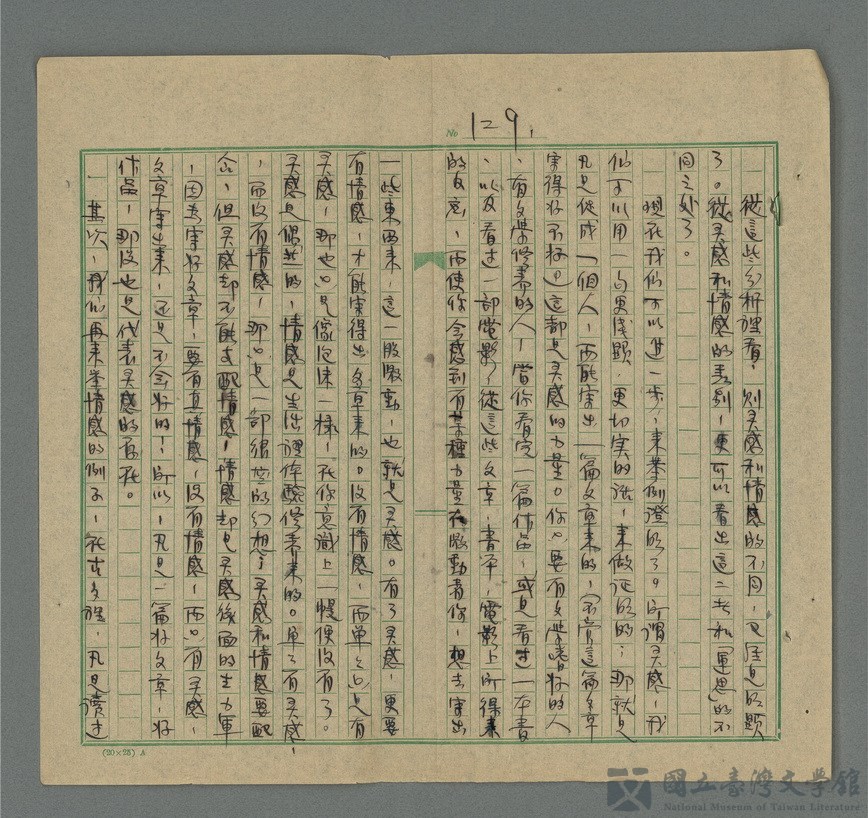 No 129,
從這些分析裡看，則灵感和情感的不同，已經是明顯
了。從灵感和情感的差別，更可以看出這二者和「運思」的不
同之处了。
現在我們可以進一步，來舉例證明了，所謂灵感，我
們可以用一句更淺顯，更切实的話，來做证明的；那就是
凡是促成一個人，而能寫出一篇文章來的，（不管這篇文章
寫得好不好）這都是灵感的力量。你只要有文學嗜好的人
，有文學修養的人，當你看完一篇作品，或是看过一本書
，以及看过一部電影，從這些文章，書本，電影上所得來
的反应，而使你会感到有某種力量在激動着你，想去寫出
一些東西來，這一股激動，也就是灵感。有了灵感，更要
有情感，才能寫得出文章來的。沒有情感，而單單只是有
灵感，那也只是像泡沫一樣，在你意識上一幌便沒有了。
灵感是偶然的，情感是生活裡体驗修養來的。單單有灵感，
，而沒有情感，那只是一部很空的幻想；灵感和情感要配
合，但灵感却不能支配情感，情感却是灵感後面的主力軍
，因為寫好文章，要有真情感，沒有情感，而只有灵感，
文章寫出來，还是不会好的！所以，凡是一篇好文章，好
作品，那沒也是代表灵感的存在。
其次，我們再來举情感的例子，在古文裡，凡是讀过
(20×25) A
國立臺灣文學館
National Museum of Taiwan Literature